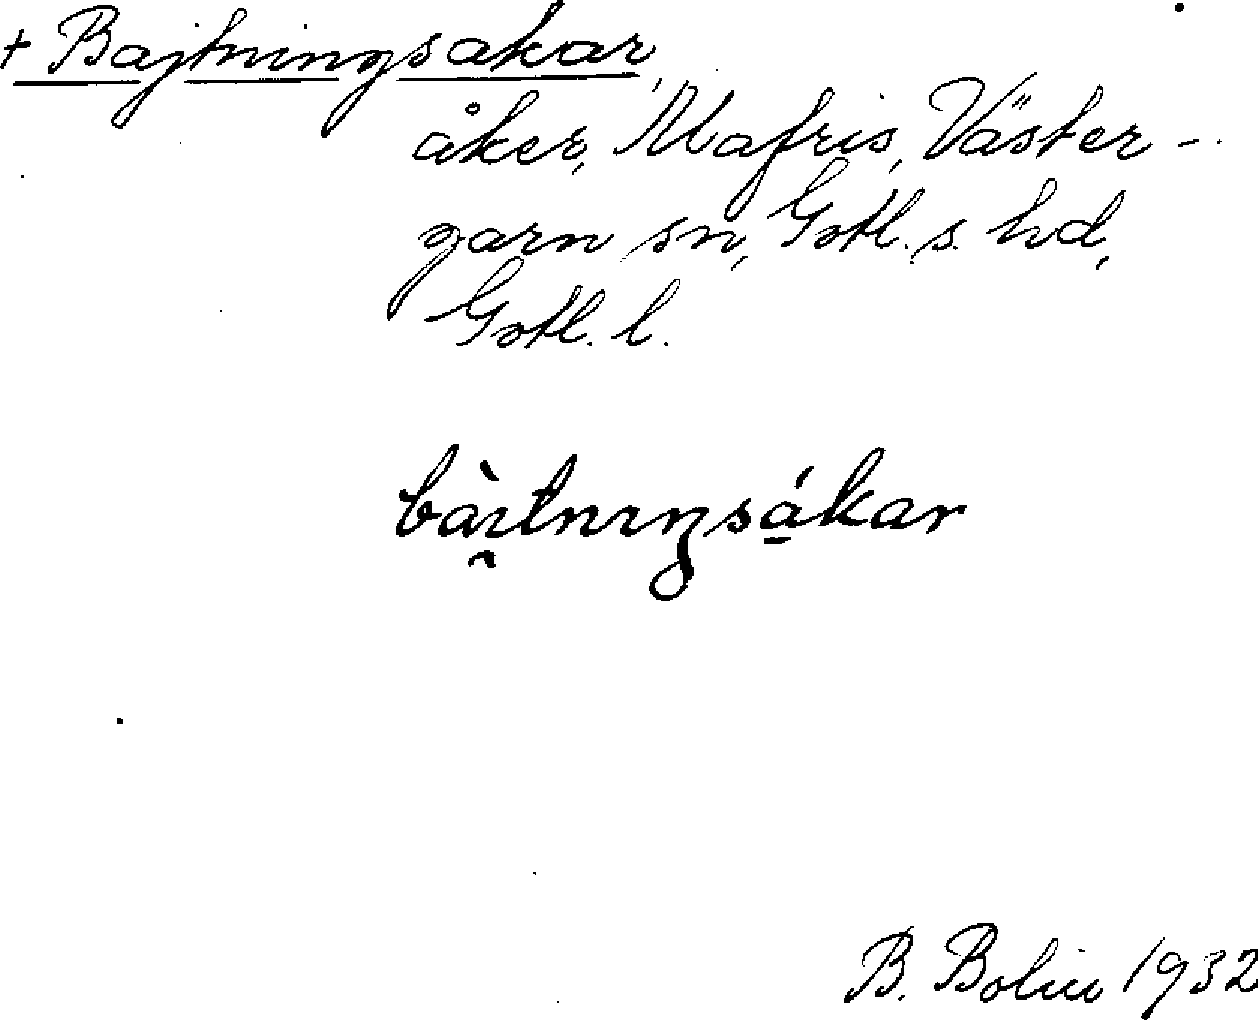 + Bajtningsakar
åker, Mafris, Väster-
garn sn, Gotl. s. hd,
Gotl. l.
bàɪ̯tnɪŋsá̱kar
B. Bolin 1932